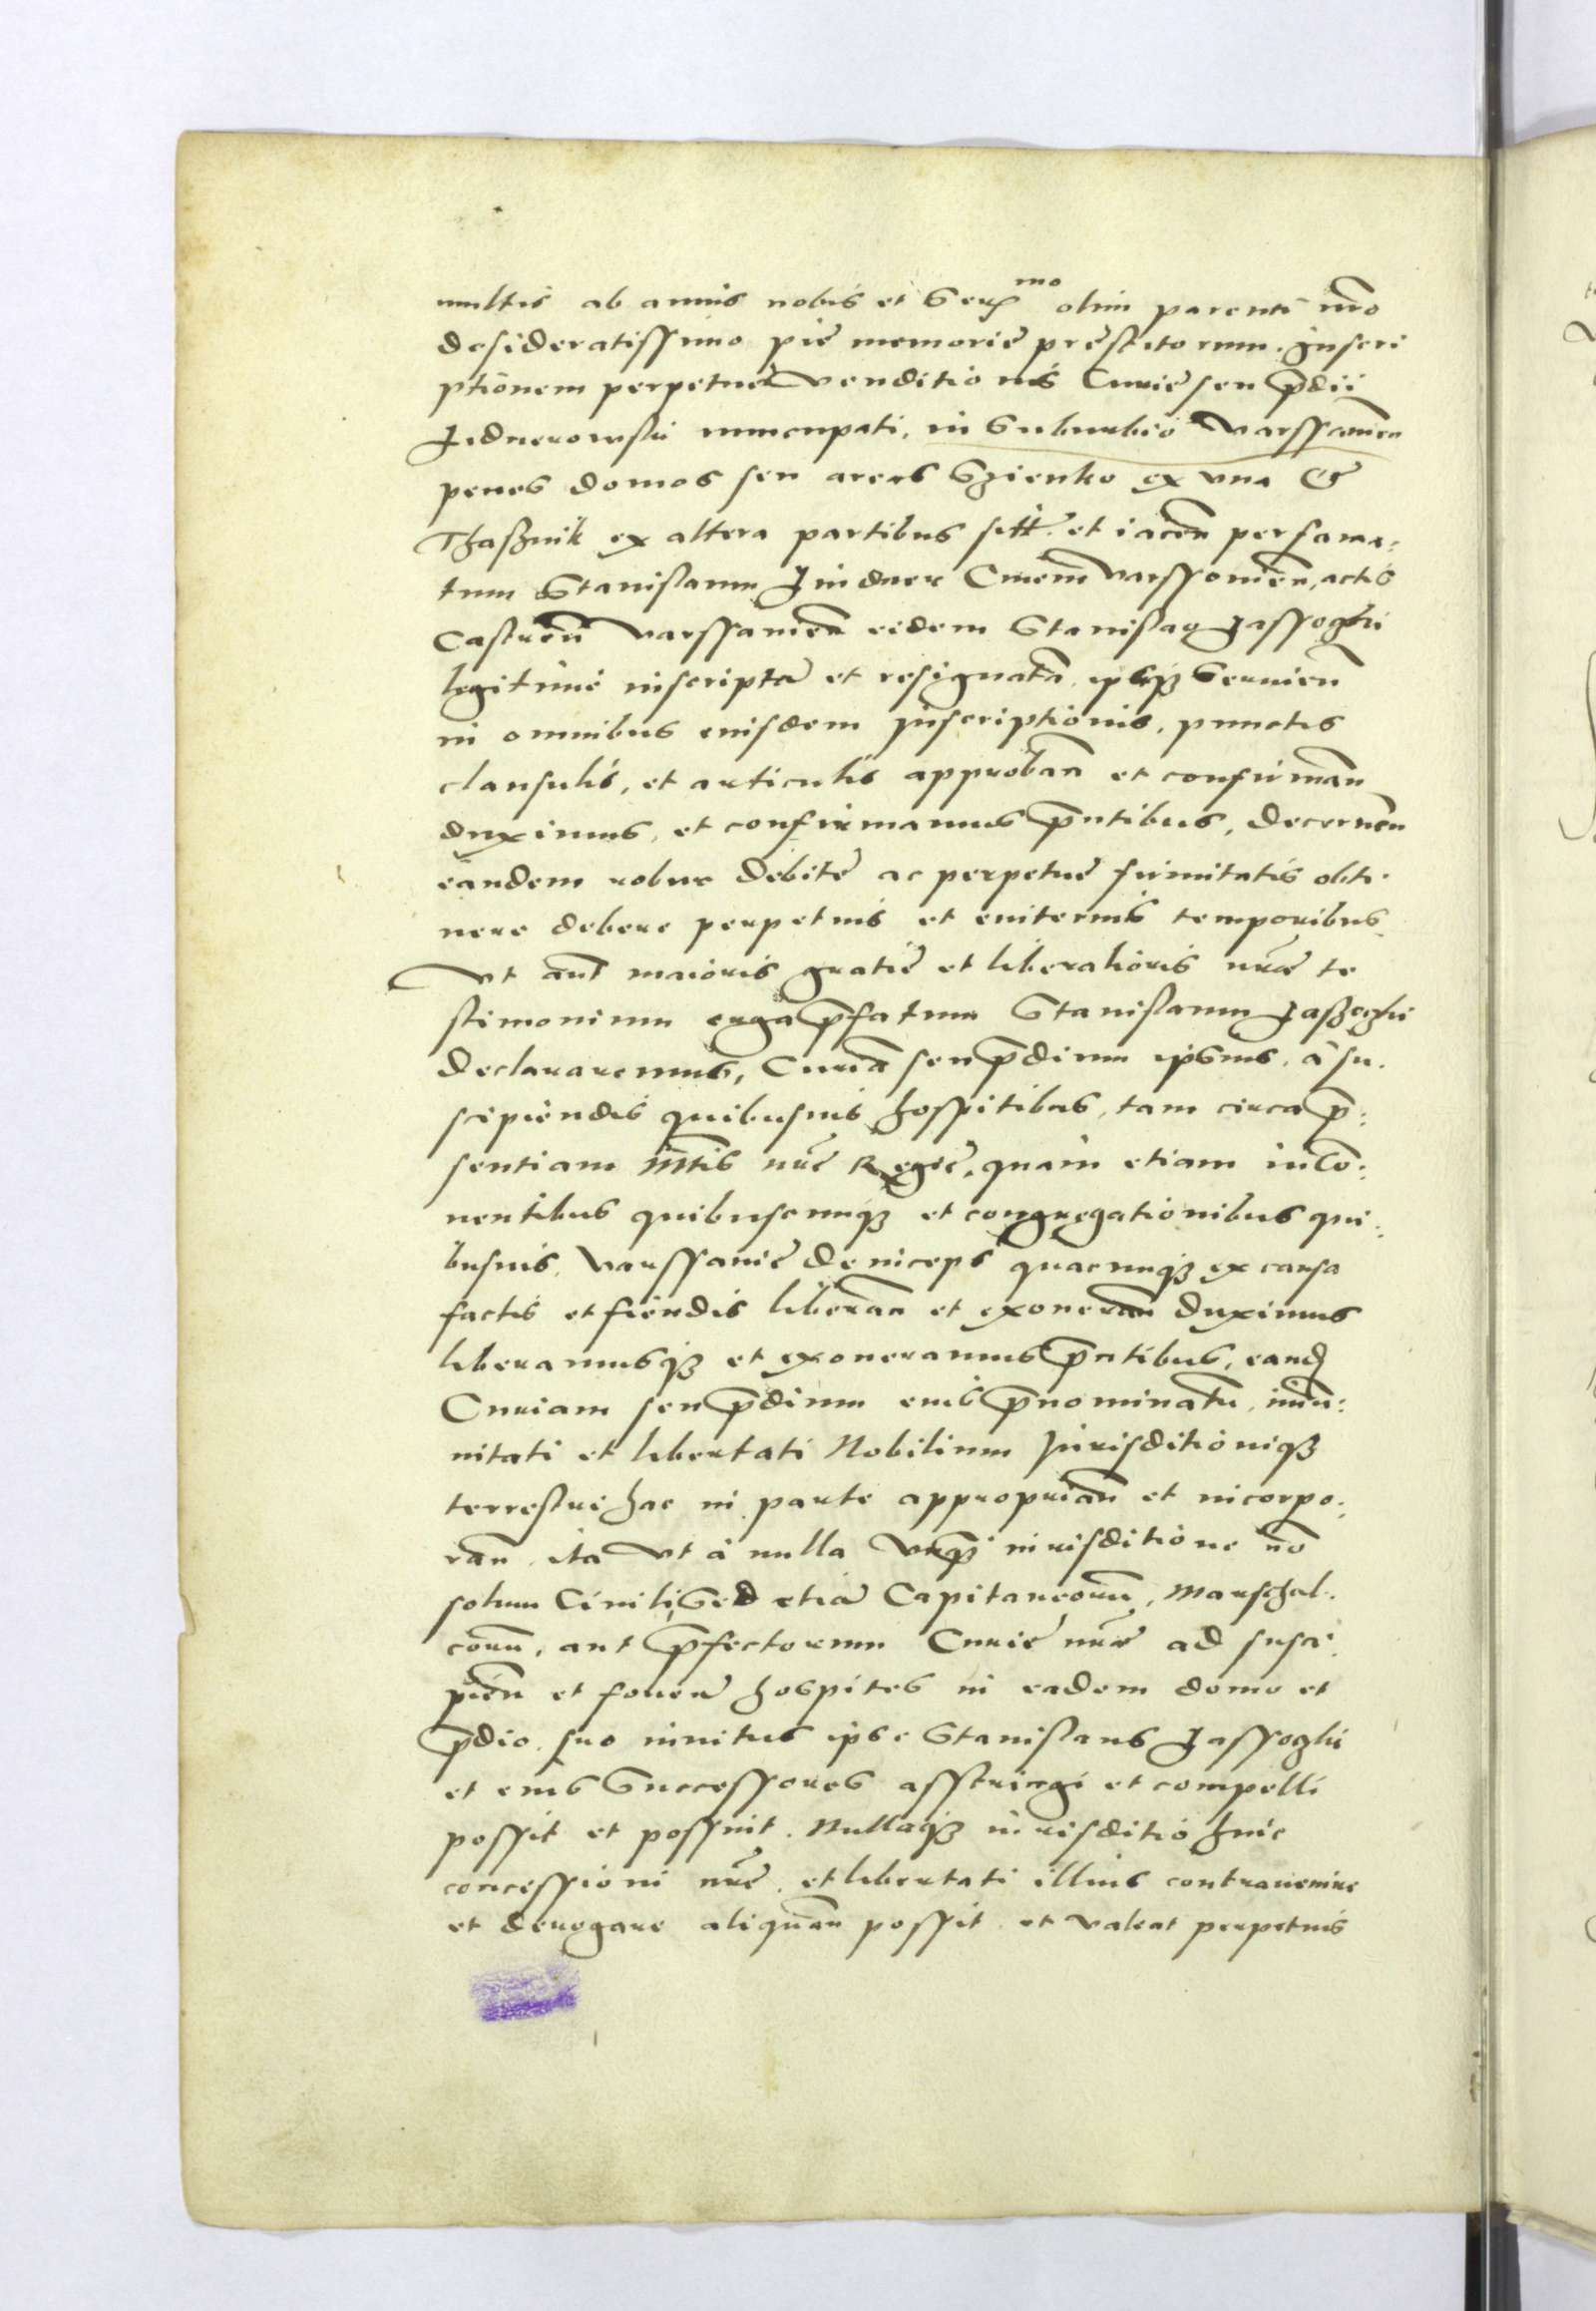 multis ab annis nobis et Ser^mo olim parenti nrō
desideratissimo piæ memoriæ præstitorum. Inscri
ptionem perpetuæ venditionis Curiæ seu p̄dii
Jidnerowski nuncupati, in Suburbio Varssauien̄
penes domos seu areas Szienko ex vna &
Thaßnik ex altera partibus sitt. et iacen̄ per fama:
tum Stanislaum Jindner Ciuem Varssouien̄, actis
Castren̄ Varssauien̄ eidem Stanislao Jassoghi
legitime inscriptā et resignatā, ipsiqȝ seruien̄
in omnibus euisdem Inscriptionis, punctis
clausulis, et articulis approban̄ et confirman̄
duximus, et confirmamus p̄ntibus, decernen̄
eandem robur debitæ ac perpetuæ firmitatis obti-
nere debere perpetuis et euiternis temporibus
Vt aut̄ maioris gratiæ et liberalioris nr̄æ te
stimonium erga p̄fatum Stanislaum Jaßeghi
declararemus, Curiā seu p̄dium ipsius, à su-
scipiendis quibusuis hospitibus, tam circa p̄:
sentiam Mttis nr̄æ Regiæ, quam etiam in Cō:
uentibus quibuscunqȝ et congregationibus qui:
busuis, Varssauiæ deinceps quacunqȝ ex causa
factis et fiendis liberan̄ et exoneran̄ duximus
liberamusqȝ et exoneramus p̄ntibus, eand
Curiam seu p̄dium eius p̄nominatū, im̄u:
nitati et libertati Nobilium Jurisditioniqȝ
terrestri hac in parte approprian̄ et incorpo:
ran̄, ita vt à nulla vnqȝ iurisditione nō
solum Ciuili, sed etiā Capitaneorū, Marschal-
corū, aut p̄fectorum Curiæ nr̄æ ad susci-
pien̄ et fouen̄ hospites in eadem domo et
p̄dio suo inuitus ipse Stanislaus Jassoghi
et eius Successores asstringi et compelli
possit et possint. Nullaqȝ iurisditio huic
concessioni nr̄æ, et libertati illius contrauenire
et derogare aliquan̄ possit et valeat perpetuis